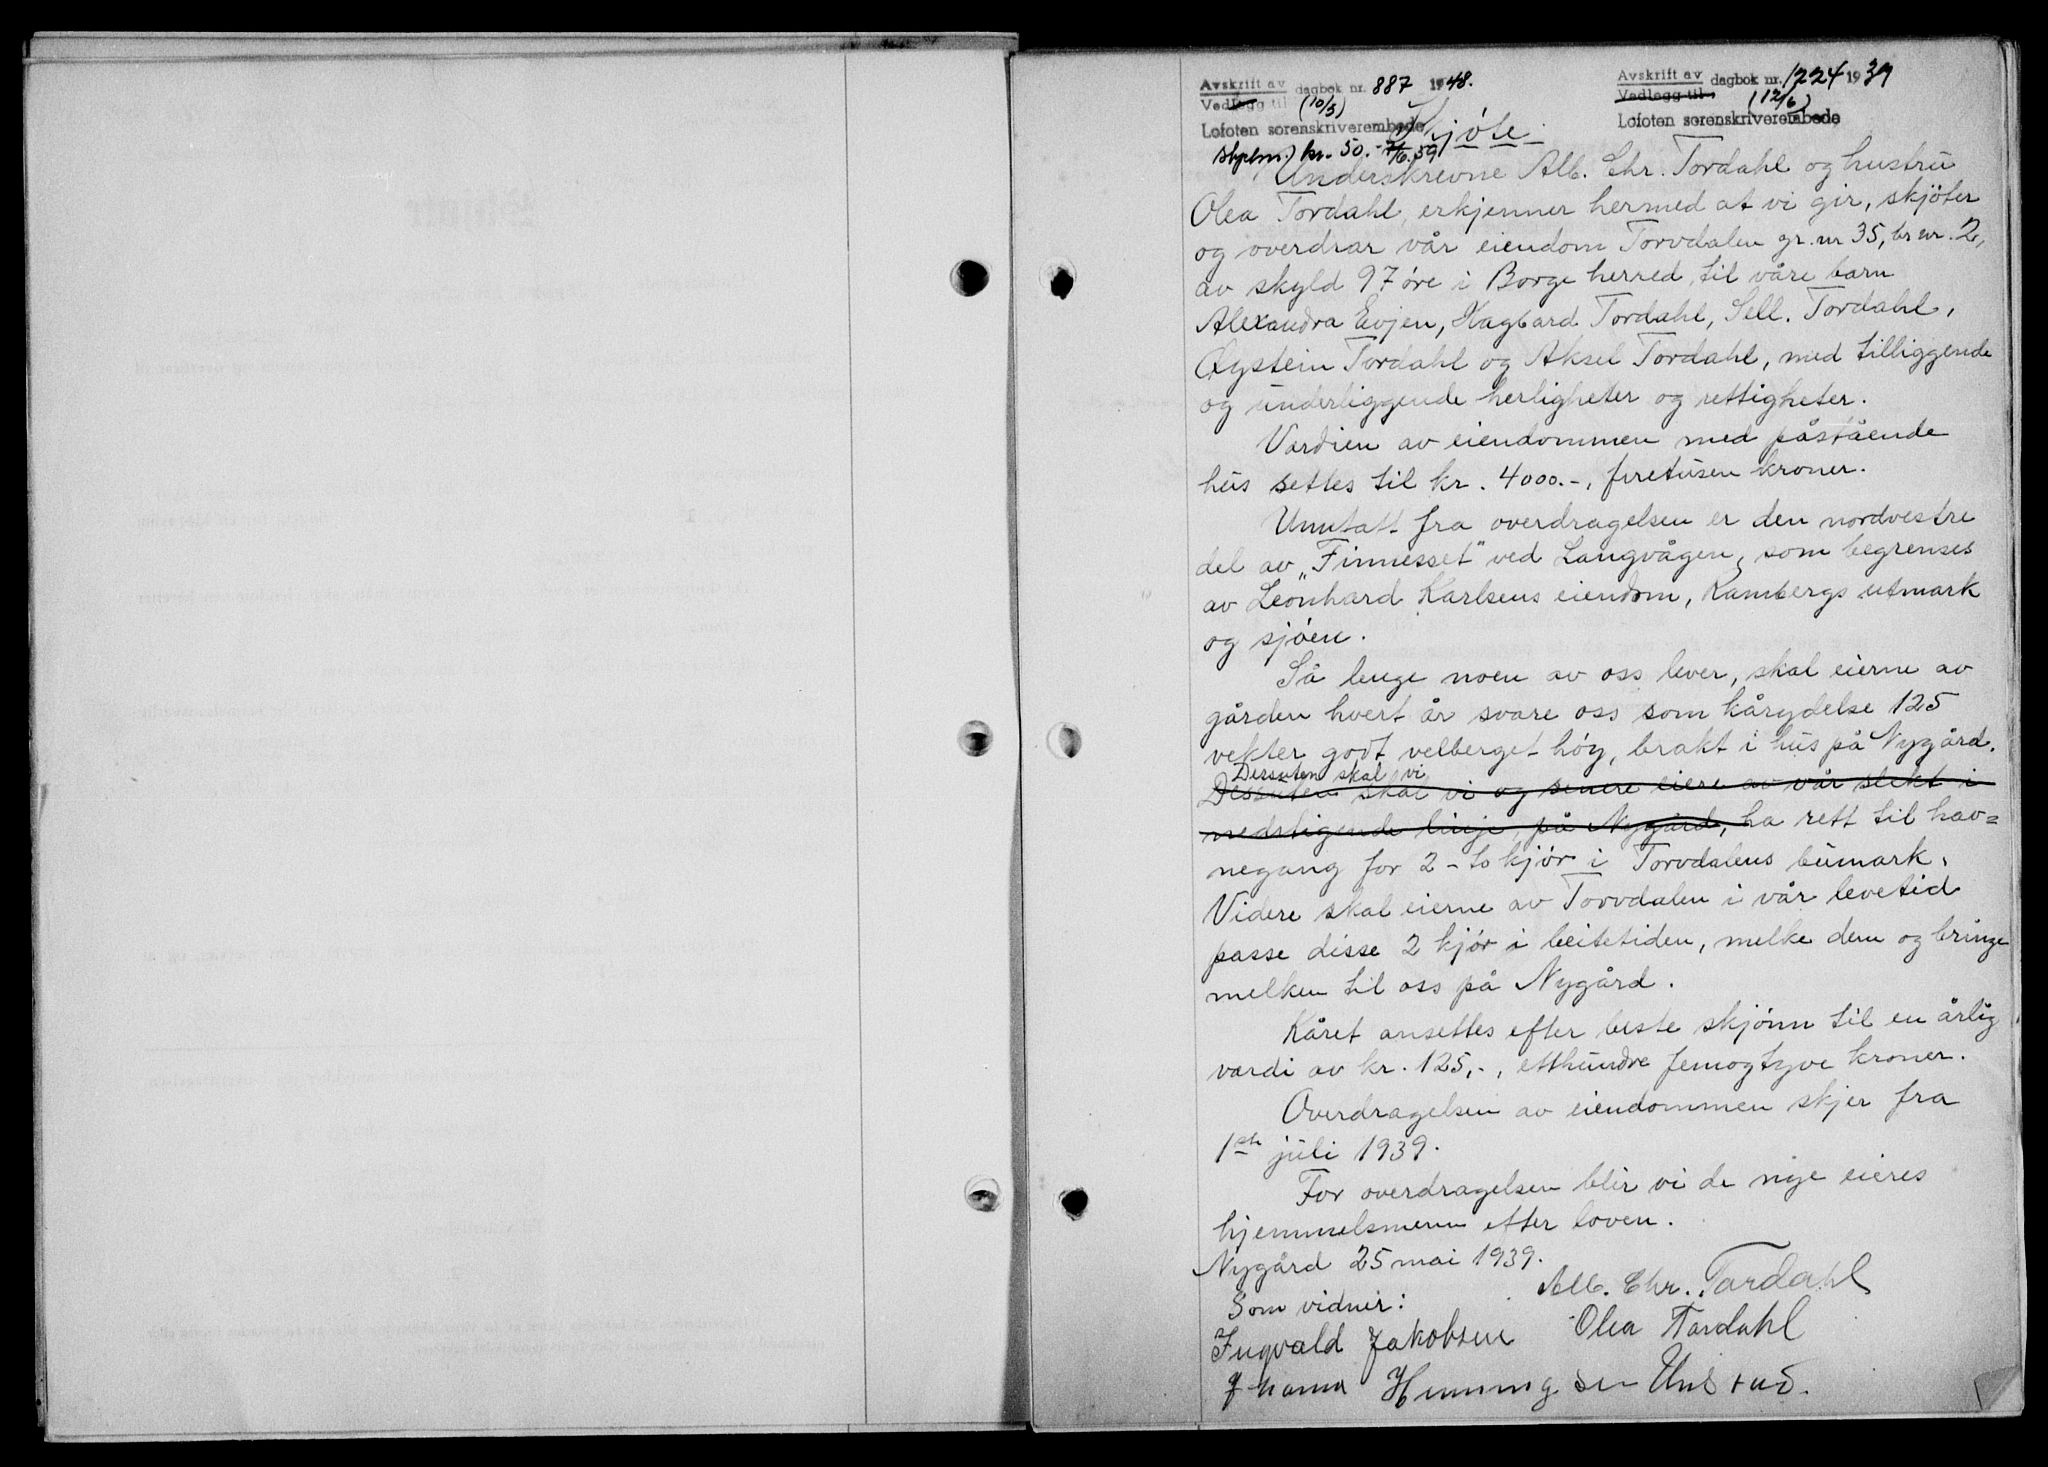 Avskrift av dagbok nr. 887 1948.
Vedlegg til (10/5)
Lofoten sorenskriverembede
Avskrift av dagbok nr. 1224 1939
Vedlegg til (12/6)
Lofoten sorenskriverembede
Skjøte.
stplm. kr. 50.- 7/6.39
Underskrevne Alb. Chr. Tordahl og hustru
Olea Tordahl, erkjenner hermed at vi gir, skjöter
og overdrar vår eiendom Torvdalen gr. nr 35, br nr. 2,
av skyld 97 öre i Borge herred, til våre barn
Alexandra Evjen, Hagbard Tordahl, Sell. Tordahl,
Øystein Tordahl og Aksel Tordahl, med tilliggende
og underliggende herligheter og rettigheter.
Verdien av eiendommen med påstående
hus settes til kr. 4000.-, firetusen kroner.
Unntatt fra overdragelsen er den nordvestre
del av „Finnesset" ved Langvågen, som begrenses
av Leonhard Karlsens eiendom, Rambergs utmark
og sjöen.
Så lenge noen av oss lever, skal eierne av
gården hvert år svare oss som kårydelse 125
vekter godt velberget höy, brakt i hus på Nygård.
Dessuten skal vi
Dessuten skal vi og senere eiere av vår slekt i
nedstigende linje, på Nygård, ha rett til hav=
negang for 2 - to kjör i Torvdalens bumark.
Videre skal eierne av Torvdalen i vår levetid
passe disse 2 kjör i beitetiden, melke dem og bringe
melken til oss på Nygård.
Kåret ansettes efter beste skjönn til en årlig
verdi av kr. 125,-, etthundre femogtyve kroner.
Overdragelsen av eiendommen skjer fra
1ste juli 1939.
For overdragelsen blir vi de nye eieres
hjemmelsmenn efter loven.
Nygård 25 mai 1939.
Alb. Chr. Tordahl
Som vidner:
Olea Tordahl
Ingvald Jakobsen
Henningsen Unstad.